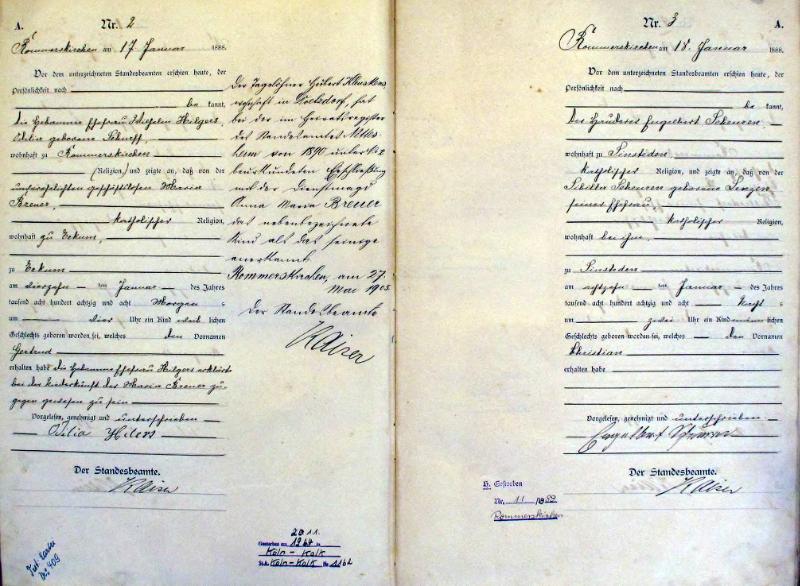 A.
Nr. 2
Rommerskirchen am 17 Januar 1888.
Vor dem unterzeichneten Standesbeamten erschien heute, der
Persönlichkeit nach
be kannt,
die Hebamme Ehefrau Wilhelm Hilgers,
Odilia geborene
wohnhaft zu Rommerskirchen
(Religion, und zeigte an, daß von der
unverehelichten geschäftslosen Maria
Breuer,
katholischer Religion,
wohnhaft zu Eckum,
zu Eckum
am vierzehn ten Januar des Jahres
tausend acht hundert achtzig und acht Morgens
um vier Uhr ein Kind weib lichen
Geschlechts geboren worden sei, welches den Vornamen
Gertrud
erhalten habe die Hebamme Ehefrau Hilgers erklärt
bei der Niederkunft der Maria Breuer zu-
gegen gewesen zu sein
Vorgelesen, genehmigt und unterschrieben
Odilia Hilers
Der Standesbeamte.
Kaiser
Der Tagelöhner Hubert
wohnhaft in hat
bei der im Heiratsregister
des Standesamtes
heim von 1890 unter
beurkundeten Eheschließung
mit der Dienstmagd
Anna Maria Breuer
das nebenbezeichnete
Kind als das seinige
anerkannt
Rommerskirchen, am 27
Mai 1905
Der Standesbeamte
Kaiser
2011.
Gestorben am 1964 in
Köln-Kalk
St.A. Köln-Kalk Nr 1164
Nr. 3
A.
Rommerskirchen am 18. Januar 1888
Vor dem unterzeichneten Standesbeamten erschien heute, der
Persönlichkeit nach
be kannt,
der Engelbert
wohnhaft zu Sinsteden
katholischer Religion, und zeigte an, daß von der
Sibilla geborene
seiner Ehefrau,
katholischer Religion,
wohnhaft bei ihm,
zu Sinsteden
am achtzehn ten Januar des Jahres
tausend acht hundert achtzig und acht
um zwei Uhr ein Kind männ lichen
Geschlechts geboren worden sei, welches den Vornamen
Christian
erhalten habe
Vorgelesen, genehmigt und unterschrieben
Engelbert
Der Standesbeamte.
Kaiser
H. Gestorben
Nr. 11
Rommerskirchen